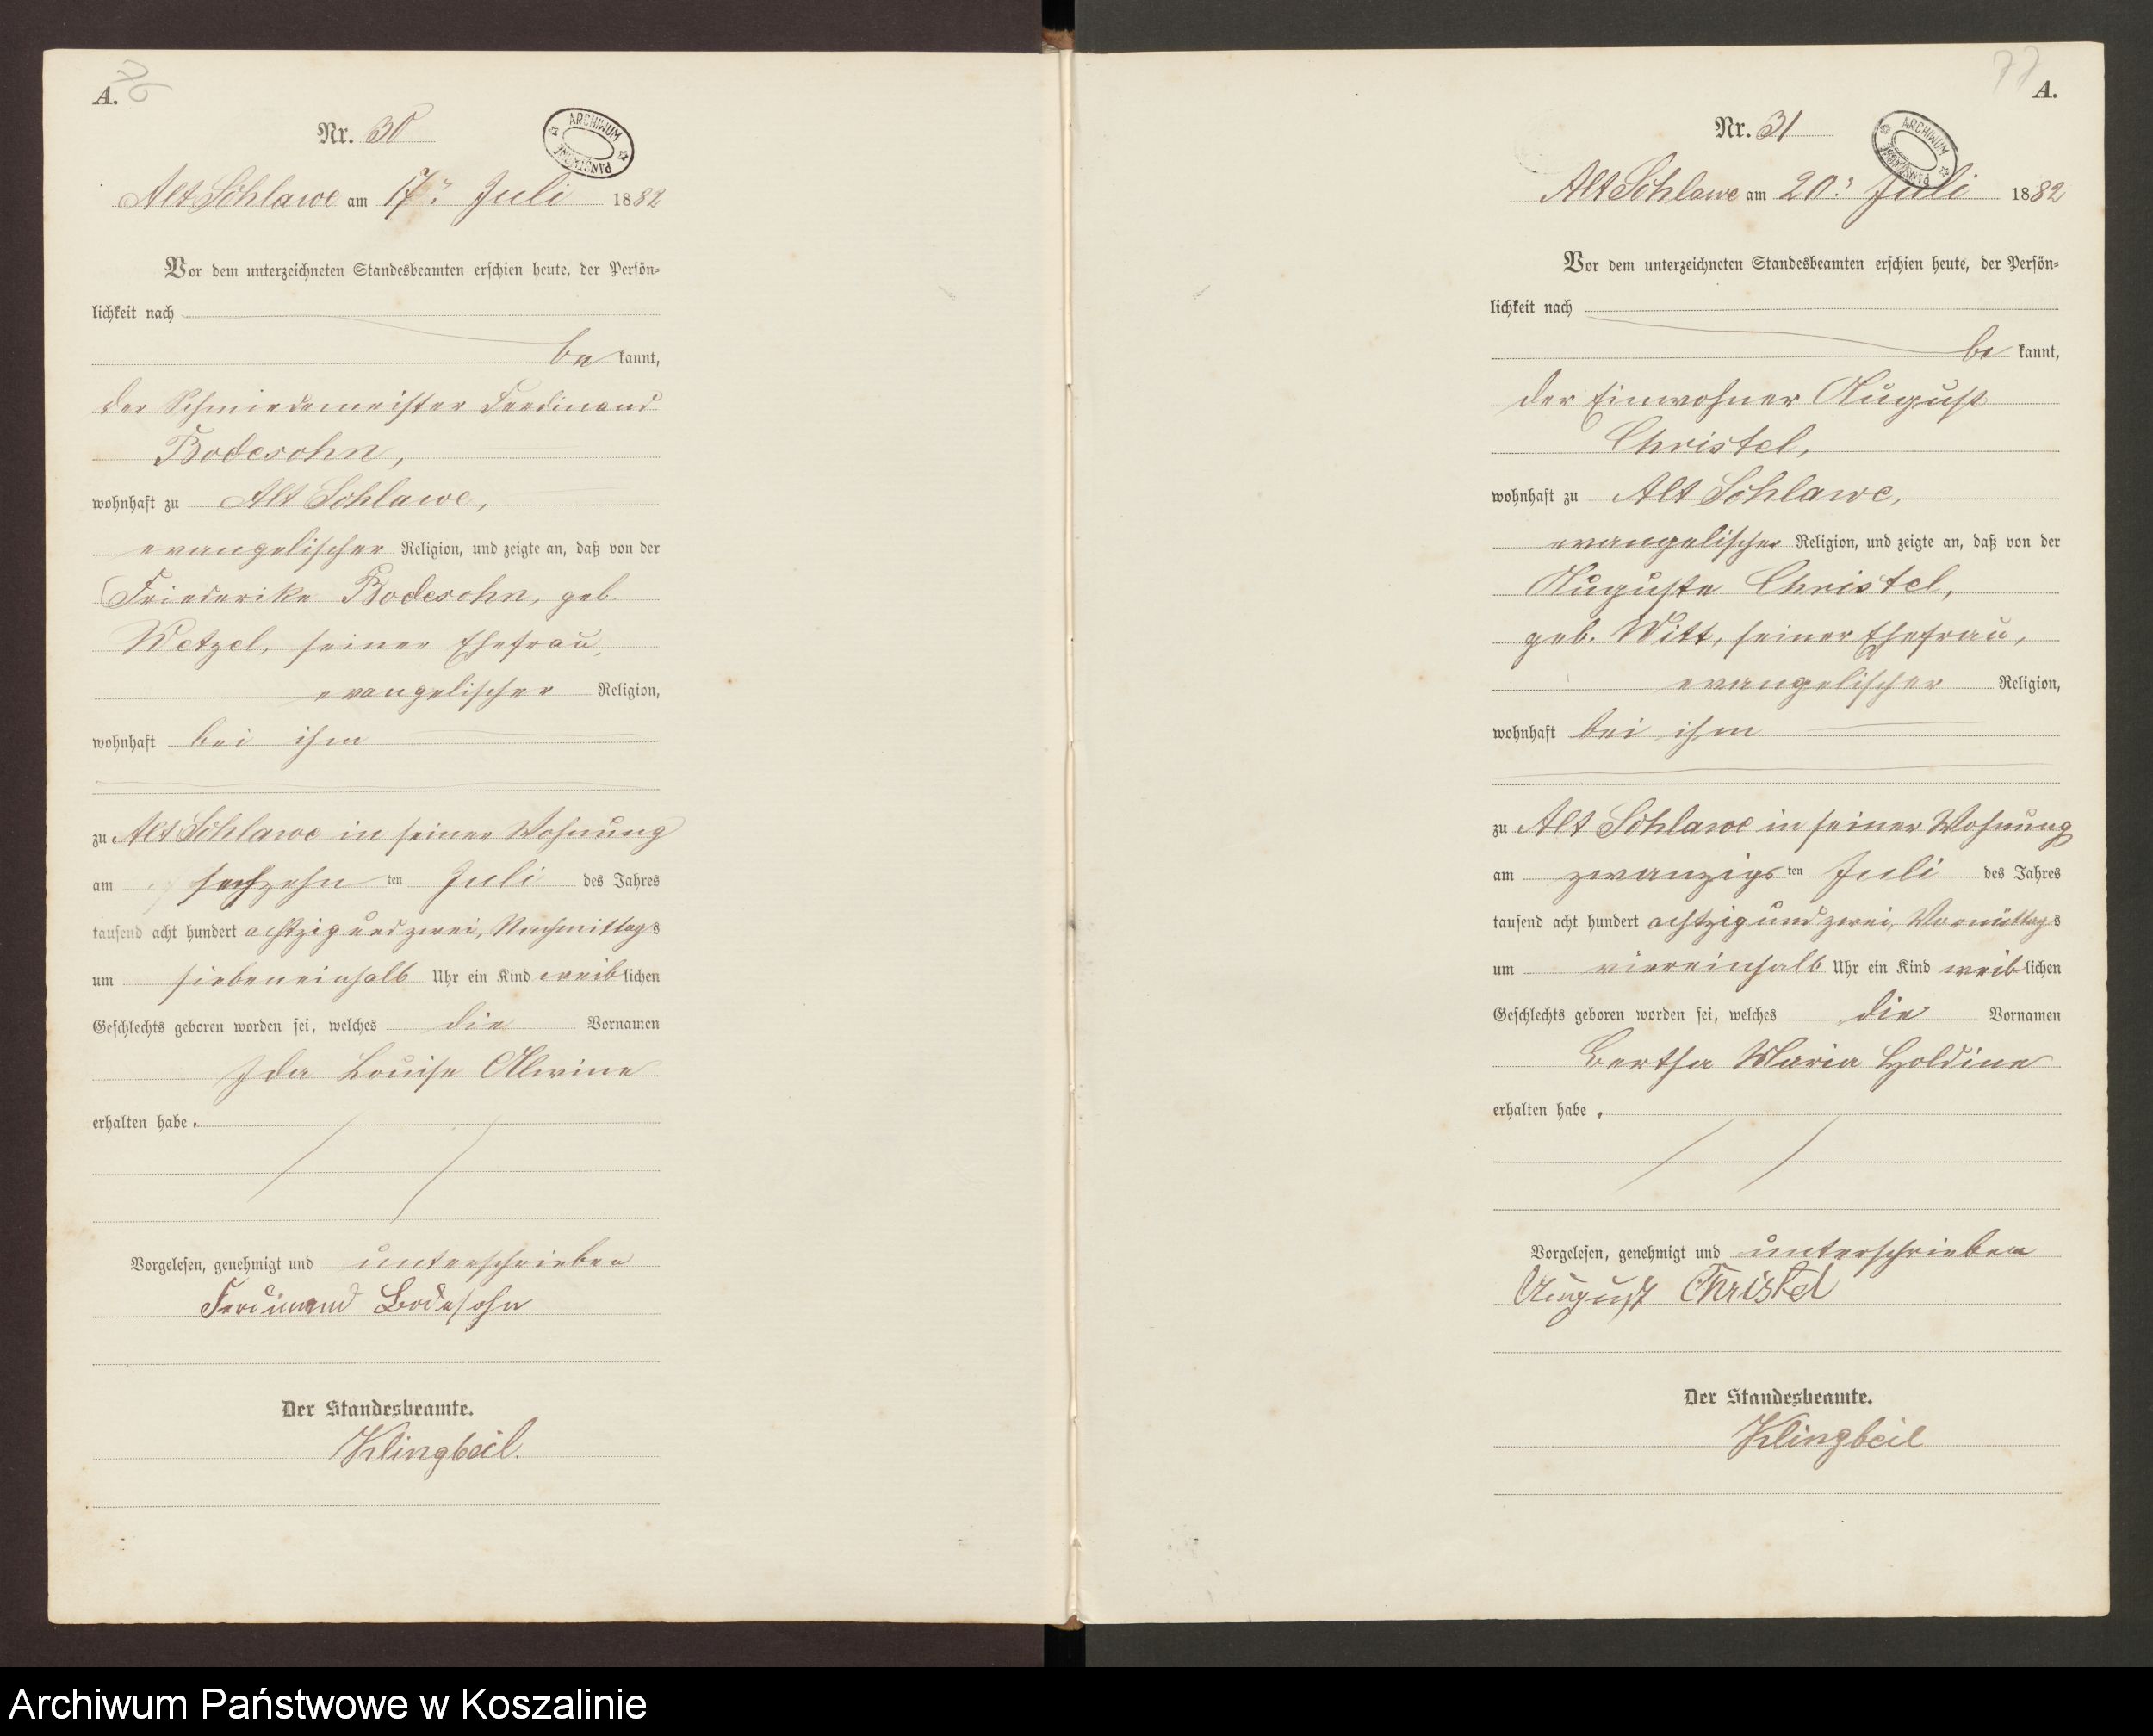 76
A.
Nr. 30
ARCHIWUM PAŃSTWOWE
Alt Schlawe am 17. Juli 1882
Vor dem unterzeichneten Standesbeamten erschien heute, der Persön-
lichkeit nach
be kannt,
der Schmiedemeister Ferdinand
Bodesohn,
wohnhaft zu Alt Schlawe,
evangelischer Religion, und zeigte an, daß von der
Friederike Bodesohn, geb.
Wetzel, seiner Ehefrau,
evangelischer Religion,
wohnhaft bei ihm
zu Alt Schlawe in seiner Wohnung
am sechzehn ten Juli des Jahres
tausend acht hundert achtzig und zwei, Nachmittags
um siebeneinhalb Uhr ein Kind weiblichen
Geschlechts geboren worden sei, welches die Vornamen
Ida Louise Alwine
erhalten habe.
Vorgelesen, genehmigt und unterschrieben
Ferdinand Bodesohn
Der Standesbeamte.
Klingbeil.
77
A.
Nr. 31
ARCHIWUM PAŃSTWOWE
Alt Schlawe am 20. Juli 1882
Vor dem unterzeichneten Standesbeamten erschien heute, der Persön-
lichkeit nach
be kannt,
der Einwohner August
Christel,
wohnhaft zu Alt Schlawe,
evangelischer Religion, und zeigte an, daß von der
Auguste Christel,
geb. Witt, seiner Ehefrau,
evangelischer Religion,
wohnhaft bei ihm
zu Alt Schlawe in seiner Wohnung
am zwanzigs ten Juli des Jahres
tausend acht hundert achtzig und zwei, Vormittags
um viereinhalb Uhr ein Kind weiblichen
Geschlechts geboren worden sei, welches die Vornamen
Bertha Maria Holdine
erhalten habe.
Vorgelesen, genehmigt und unterschrieben
August Christel
Der Standesbeamte.
Klingbeil
Archiwum Państwowe w Koszalinie